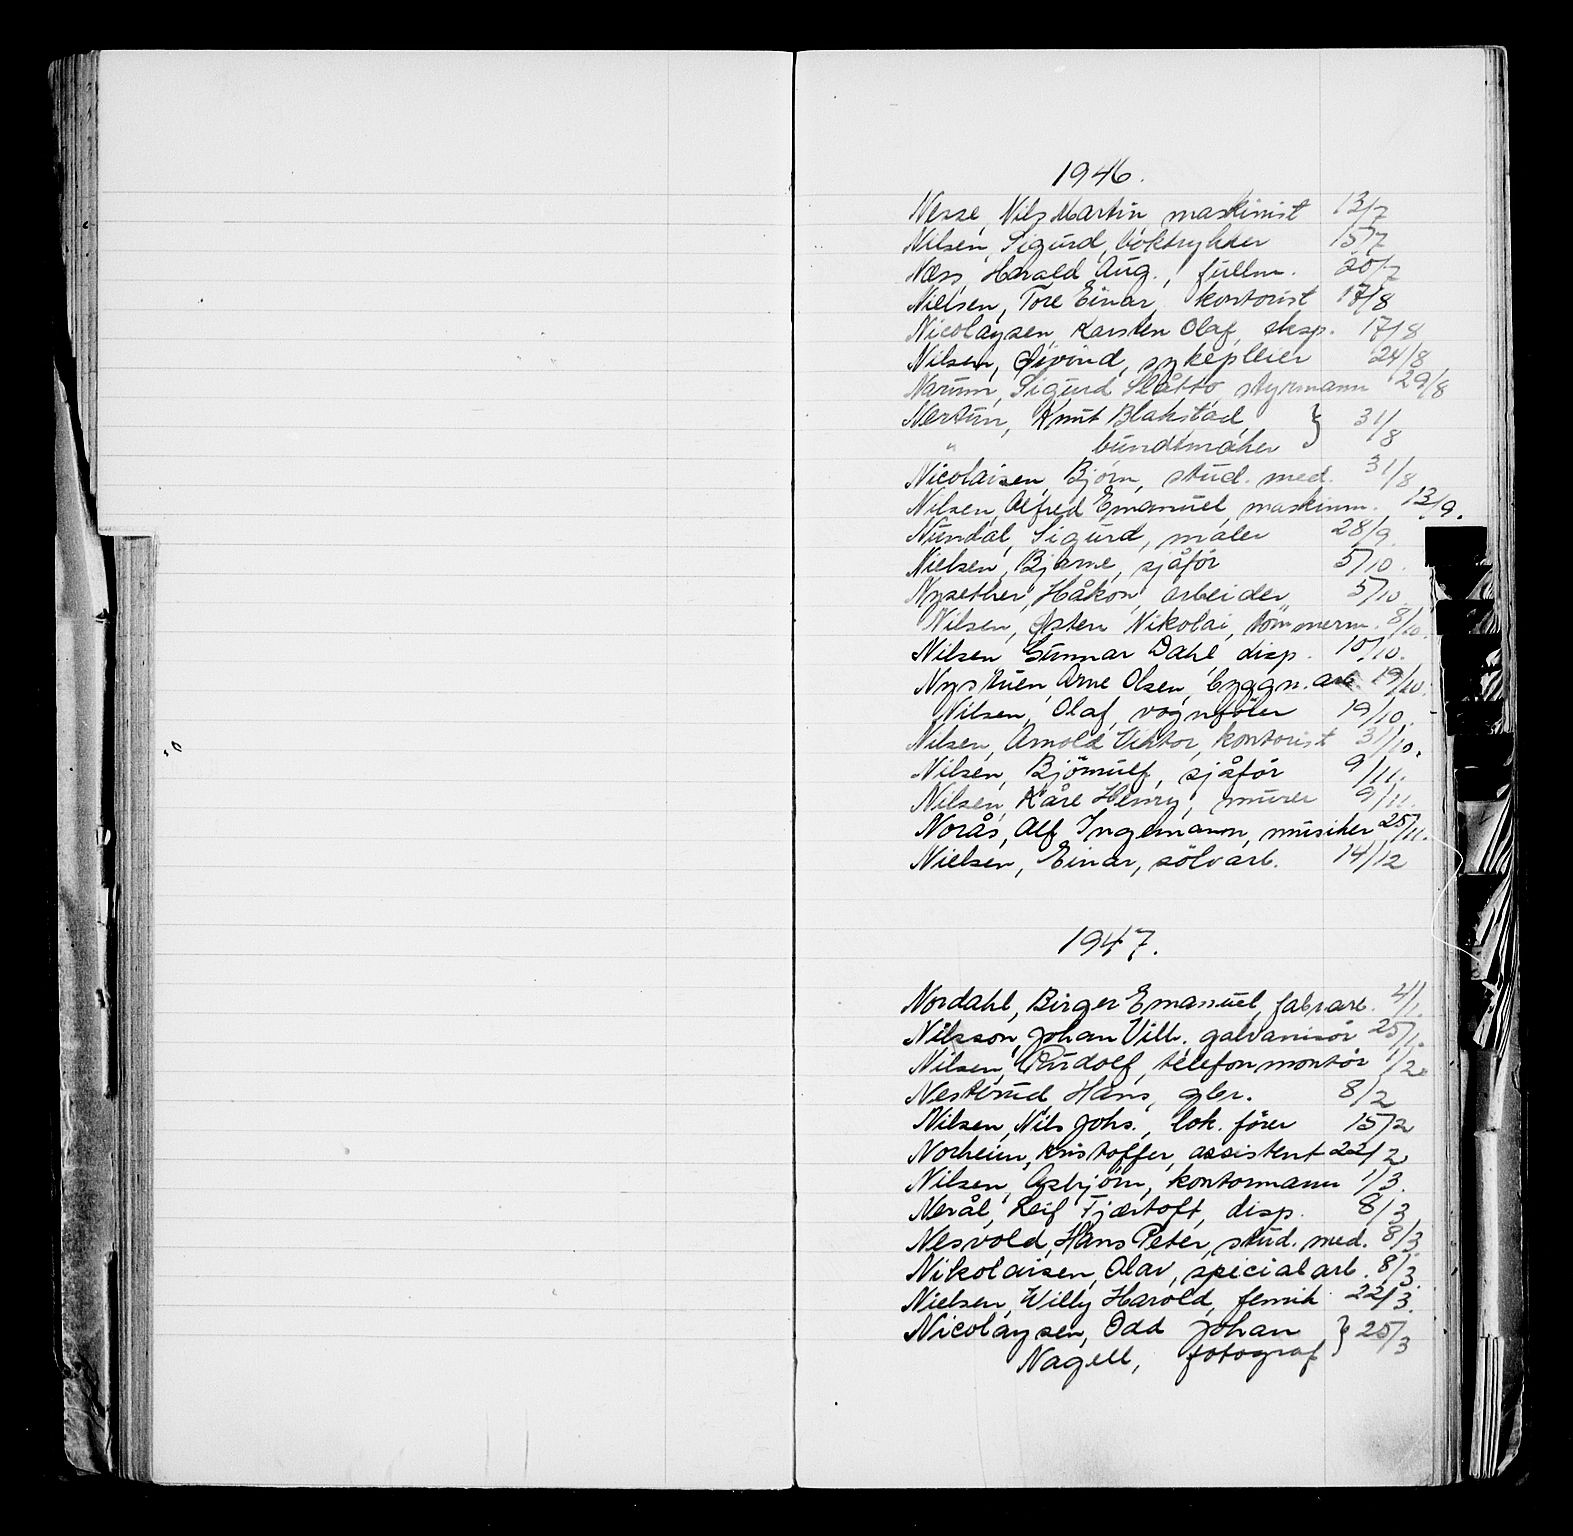 1946.
Nesse, Nils Martin, maskinist 13/7
Nilsen, Sigurd, boktrykker 15/7
Næss, Harald Aug., fullm. 20/7
Nielsen, Tore Einar, kontorist 17/8
Nicolaysen, Karsten Olaf, eksp. 17/8
Nilsen, Øivind, sykepleier 24/8
Narum, Sigurd Slåtto, styrmann 29/8
Nertun, Knut Blakstad, } 31/8
" buntmaker
Nicolaisen, Bjørn, stud. med. 31/8
Nilsen, Alfred Emanuel, maskinm. 13/9.
Nundal, Sigurd, maler 28/9.
Nielsen, Bjarne, sjåfør 5/10.
Nysether, Håkon, arbeider 5/10.
Nilsen, Østen Nikolai, tömmerm. 8/10.
Nilsen Gunnar Dahl, disp. 10/10.
Nystuen, Arne Olsen, byggn. arb. 19/10.
Nilsen, Olaf, vognfører 19/10.
Nilsen, Arnold Viktor, kontorist 31/10.
Nilsen, Björnulf, sjåför 9/11.
Nilsen, Kåre Henry, murer 9/11.
Norås, Alf Ingemann, musiker 25/11.
Nielsen, Einar, sölvarb. 14/12
1947.
Nordahl, Birger Emanuel, fabr.arb. 4/1.
Nilsson, Johan Vilh. galvanisör 25/1.
Nilsen, Rudolf, telefonmontör 1/2.
Nesterud, Hans, gbr. 8/2
Nilsen, Nils Johs., lok. förer 15/2
Norheim, Kristoffer, assistent 22/2
Nilsen, Asbjörn, kontormann 1/3.
Nerål, Leif Fjærtoft, disp. 8/3
Nesvold, Hans Peter, stud. med. 8/3.
Nikolaisen, Olav, spesialarb. 8/3.
Nielsen, Willy Harold, 22/3.
Nicolaysen, Odd Johan } 25/3
Nagell, fotograf